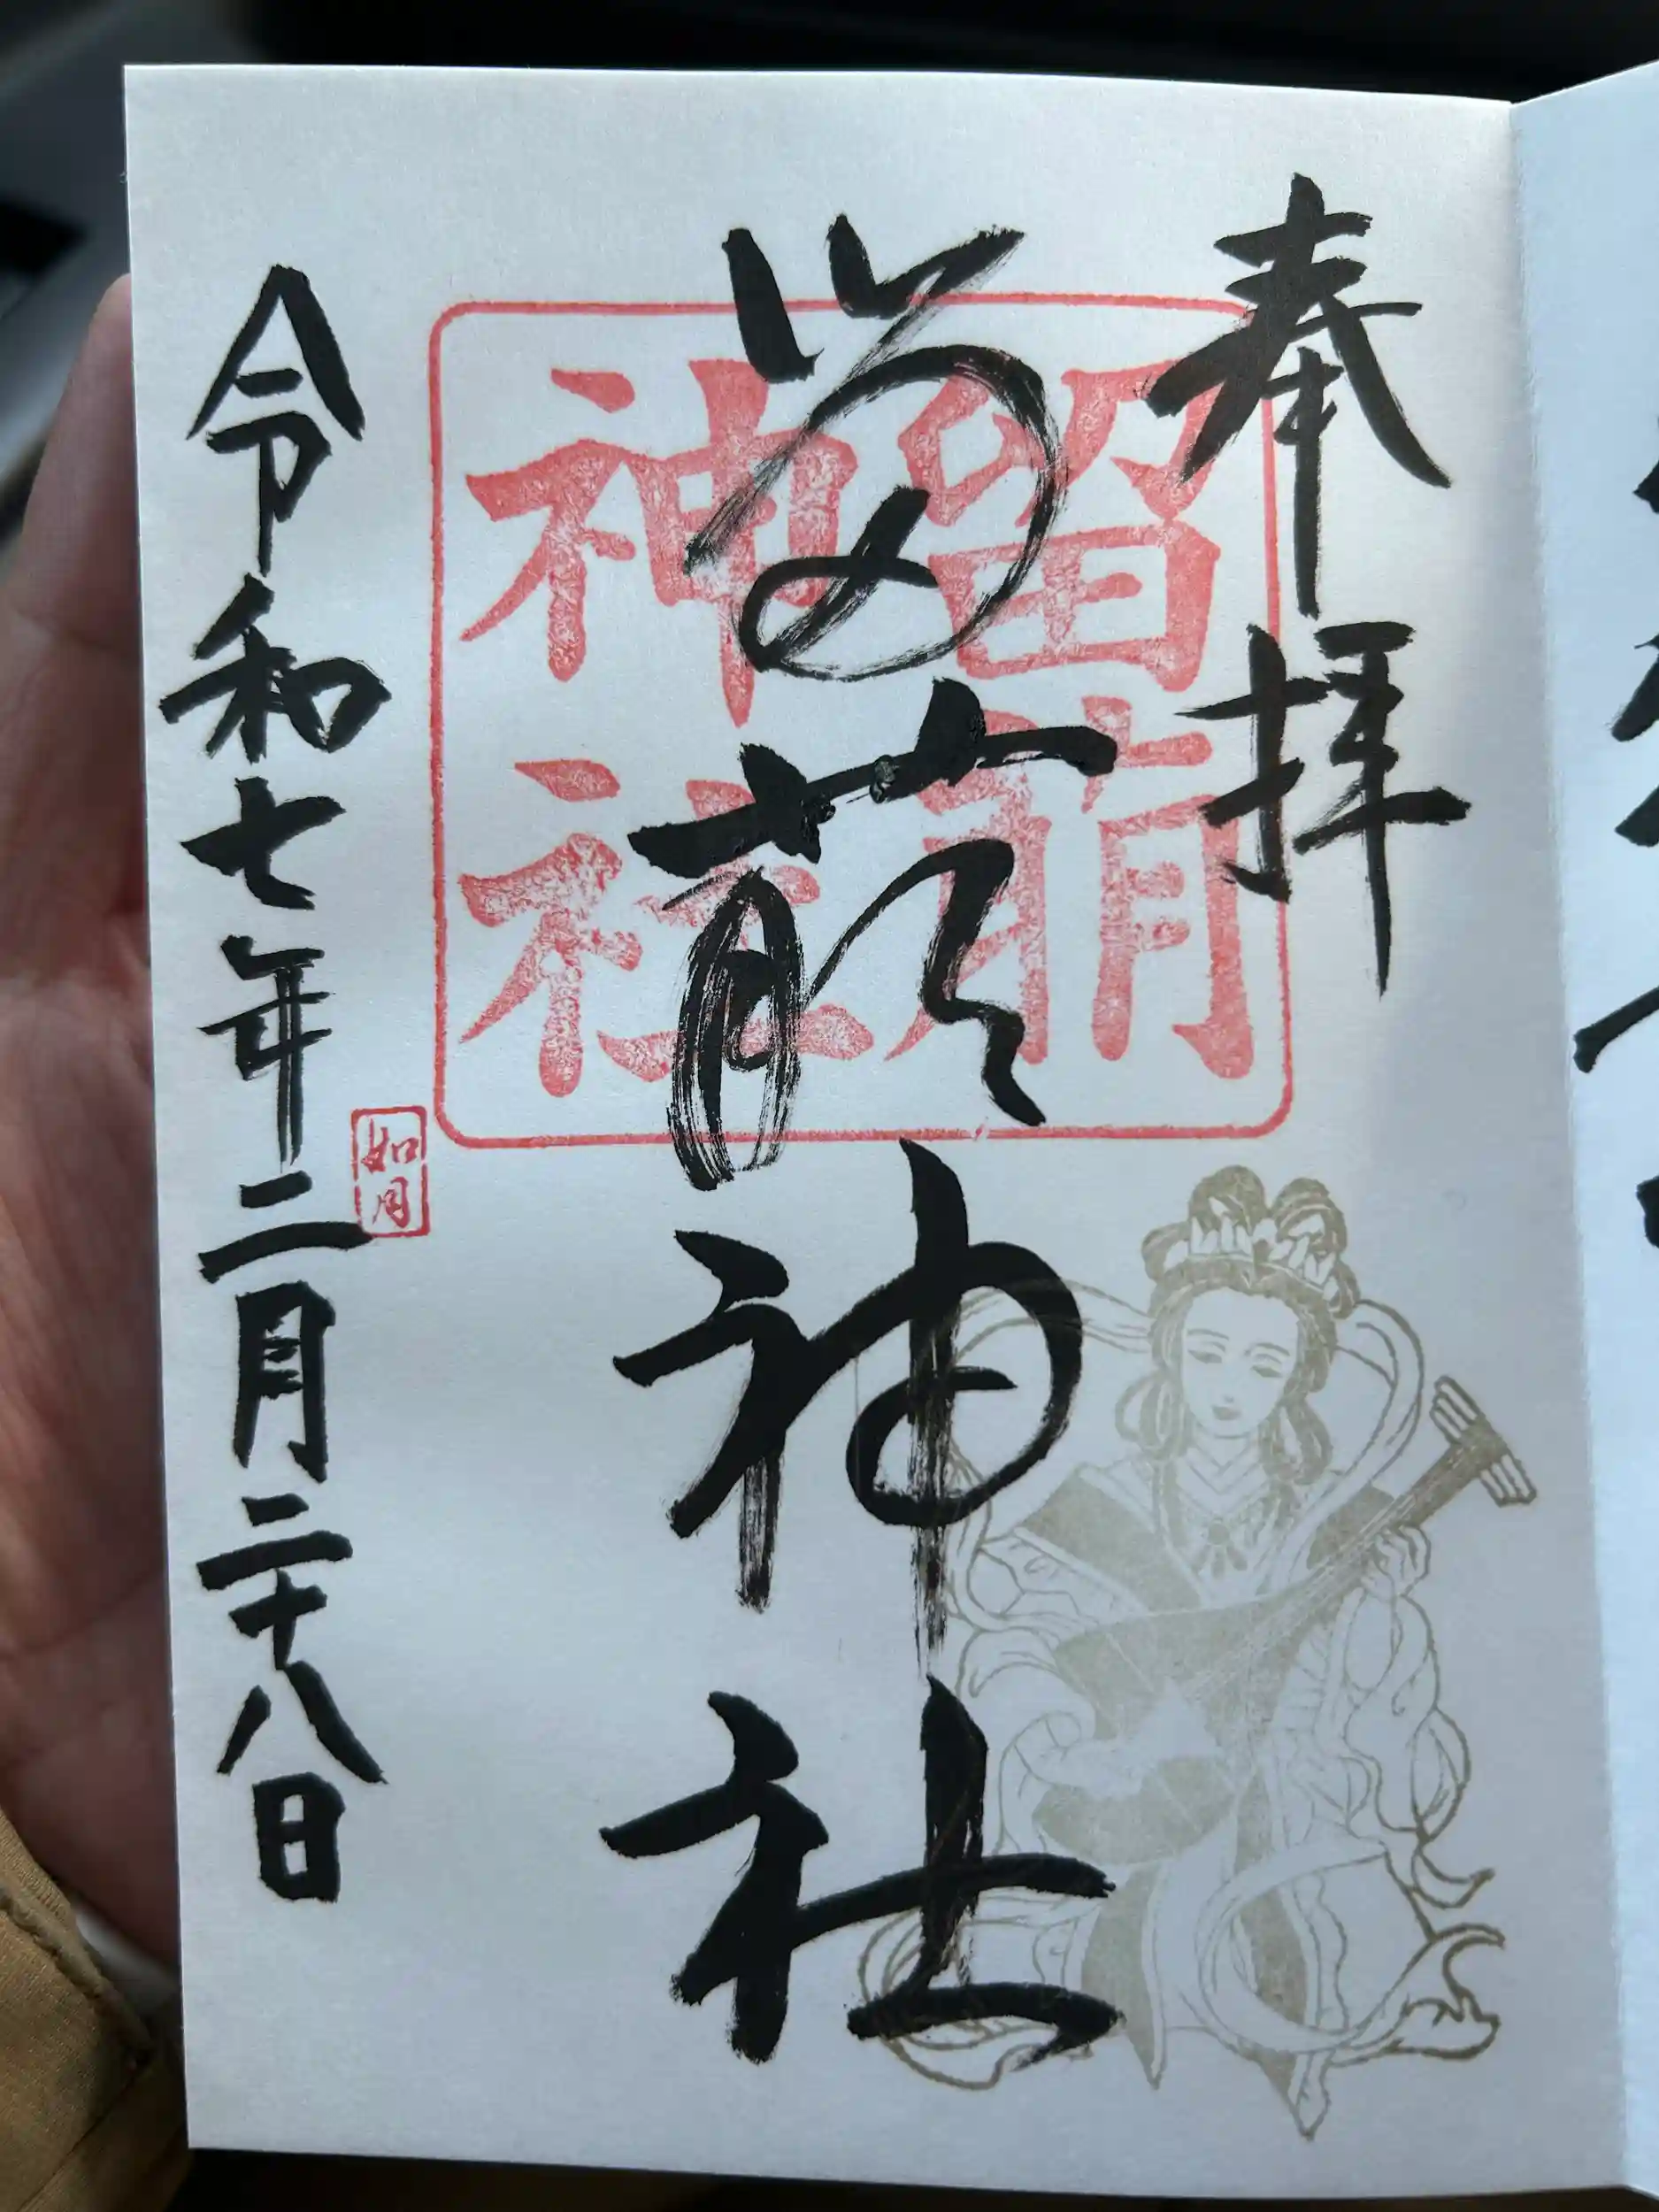 奉拝
留萌神社
留萌神社
如月
令和七年二月二十八日